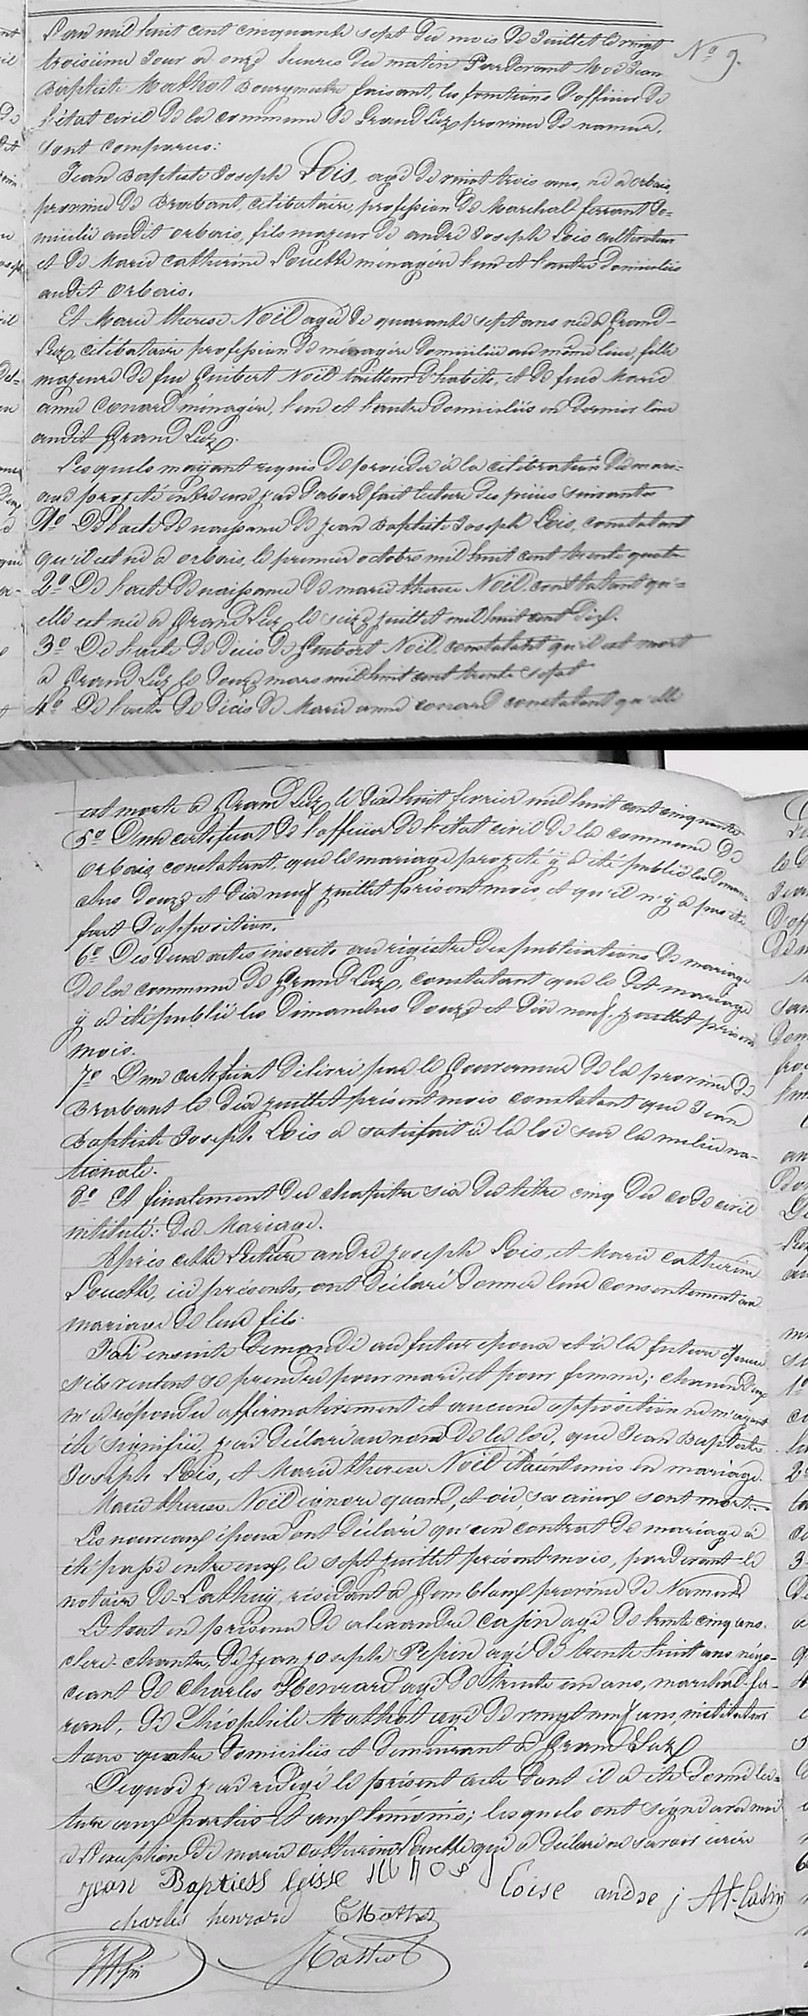 L'an mil huit cent cinquante sept du mois de Juillet le vingt
troisième Jour à onze heures du matin Pardevant Nous Jean
Baptiste Mathot Bourgmestre faisant les fonctions d'officier de
l'état civil de la commune de Grand Leez province de namur,
sont comparus:
Nº 9.
Jean Baptiste Joseph Lois, agé de vingt trois ans, né à orbais,
province de Brabant, célibataire, profession de Marchal ferrant do-
micilié audit orbais, fils majeur de andré Joseph Lois cultivateur
et de Marie Catherine Louette ménagère l'un et l'autre domiciliés
audit orbais.
Et Marie therese Noël agée de quarante sept ans née à Grand-
Leez célibataire profession de ménagère domiciliée au même lieu, fille
majeure de feu Guibert Noël d'habits, et de feue Marie
anne Conard ménagère, l'un et l'autre domiciliés en dernier lieu
audit Grand Leez.
Lesquels m'ayant requis de procéder à la célébration du mari-
age projeté entre eux j'ai d'abord fait lecture des pièces suivantes
1º De l'acte de naissance de Jean Baptiste Joseph Lois, constatant
qu'il est né à orbais, le premier octobre mil huit cent trente quatre
2º De l'acte de naissance de marie therese Noël constatant qu'-
elle est née à Grand Leez le seize juillet mil huit cent dix.
3º De l'acte de décès de Guibert Noël, constatant qu'il est mort
à Grand Leez le douze mars mil huit cent trente sept
4º De l'acte de décès de Marie anne conard constatant qu'elle
est morte à Grand Leez le dix huit fevrier mil huit cent cinquante
5º D'un certificat de l'officier de l'état civil de la commune de
orbais constatant que le mariage projeté y a été publié les diman-
ches douze et dix neuf juillet présent mois, et qu'il n'y a pas été
fait d'opposition.
6º Des deux actes inscrits au régistre des publications de mariage
de la commune de Grand Leez, constatant que le dit mariage
y a été publié les Dimanches douze et dix neuf juillet présent
mois.
7º D'un certificat délivré par le Gouverneur de la province de
Brabant le dix juillet présent mois constatant que Jean
Baptiste Joseph Lois a satisfait à la loi sur la milice na-
tionale.
8º Et finalement du chapitre six du titre cinq du code civil
intitulé: du Mariage.
Après cette Lecture andré joseph Lois, et Marie catherine
Louette, ici présents, ont déclaré donner leur consentement au
mariage de leur fils.
J'ai ensuite demandé au futur époux et à la future épouse
s'ils veulent se prendre pour mari et pour femme; chacun d'eux
m'a répondu affirmativement et aucune opposition ne m'ayant
été signifiée, j'ai déclaré au nom de la loi, que Jean Baptiste
Joseph Lois, et Marie therese Noël étaient unis en mariage.
Marie therese Noël ignore quand, et où, ses aïeux sont morts.
Les nouveaux époux ont déclaré qu'un contrat de mariage a
été passé entre eux, le sept juillet présent mois, pardevant le
notaire de Lathuy, résidant à Gembloux province de Namur
Le tout en présence de alexandre Cassin agé de trente cinq ans,
clerc-chantre, de Jean joseph Pepin agé de trente huit ans, négo-
ciant de Charles Henrard agé de trente un ans, marchal-fer-
rant, de Théophile Mathot agé de vingt neuf ans, instituteur
tous quatre domiciliés et demeurant à Grand Leez
De quoi j'ai redigé le présent acte dont il a été donné lec-
ture aux parties et aux témoins; lesquels ont signé avec moi
à l'exception de marie catherine Louette qui a déclaré ne savoir écrire
Jean Baptiess Loisse
Loise andre j
charles henrard
TMathot
Mathot